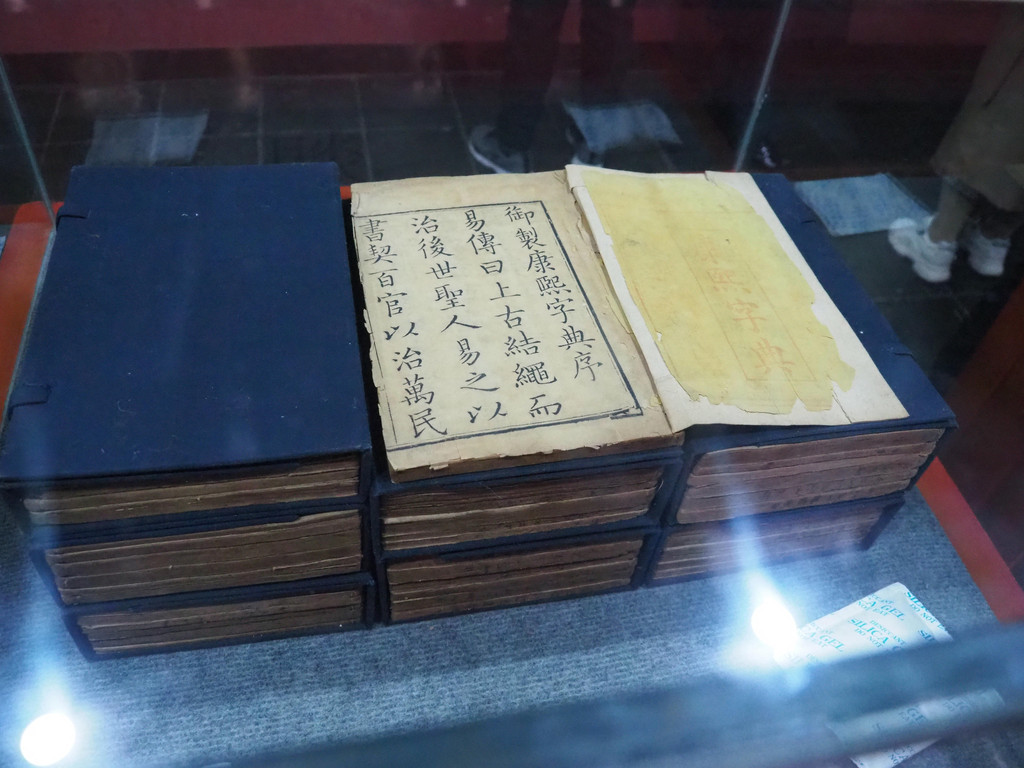 康熙字典
御製康熙字典序
易傳曰上古結繩而
治後世聖人易之以
書契百官以治萬民
SILICA GEL
DO NOT EAT
SILICA GEL
DO NOT